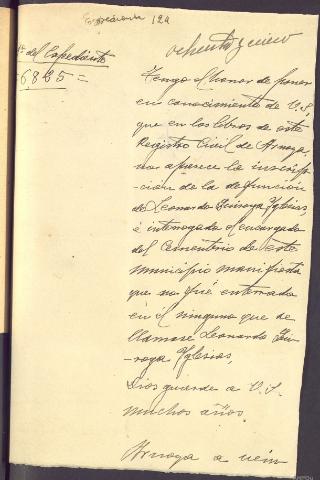 124
ochenta y cinco
Nº del Expediente
=6835=
Tengo el honor de poner
en conocimiento de V.S,
que en los libros de este
Registro Civil de Arnoya,
no aparece la inscrip-
cion de la defuncion
de Leonardo Quiroga Yglesias,
é interrogado el encargado
del Cementerio de este
municipio manifiesta
que no fué enterrado
en él ninguno que se
llamase Leonardo Qui-
-roga Yglesias,
Dios guarde a V.S.
muchos años.
Arnoya a vein